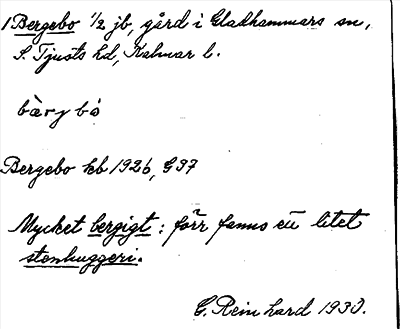 1 Bergebo 1/2 jb, gård i Gladhammars sn,
S. Tjusts hd, Kalmar l.
bærybo
Bergebo kb 1926, G 37
Mycket bergigt: förr fanns ett litet
stenhuggeri.
G. Reinhard 1930.